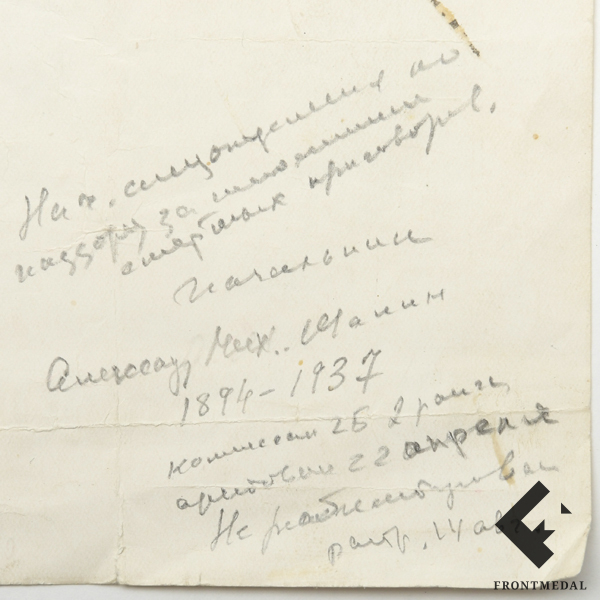 Нач. спецотделения по
надзору за исполнением
смертных приговоров.
Начальник
Александр Мих. Шанин
1894-1937
комиссар ГБ 2 ранга
арестован 22 апреля
Не реабилитирован
расстр. 14 авг
FRONTMEDAL